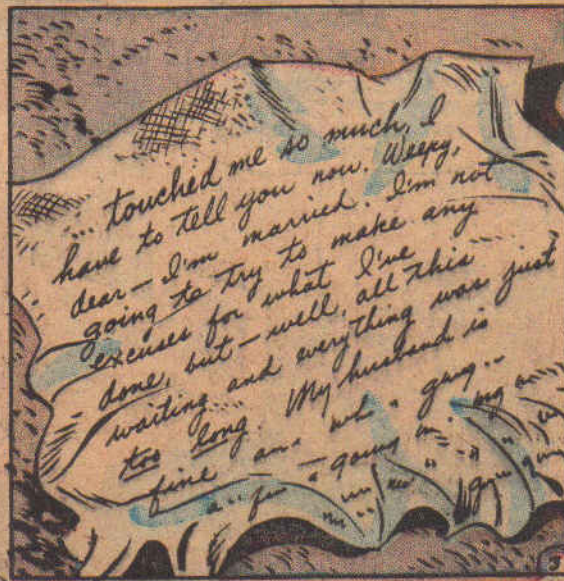 ... touched me so much, I
have to tell you now. Weepy,
dear — I'm married. I'm not
going to try to make any
excuses for what I've
done, but — well, all this
waiting and everything was just
too long. My husband is
fine and